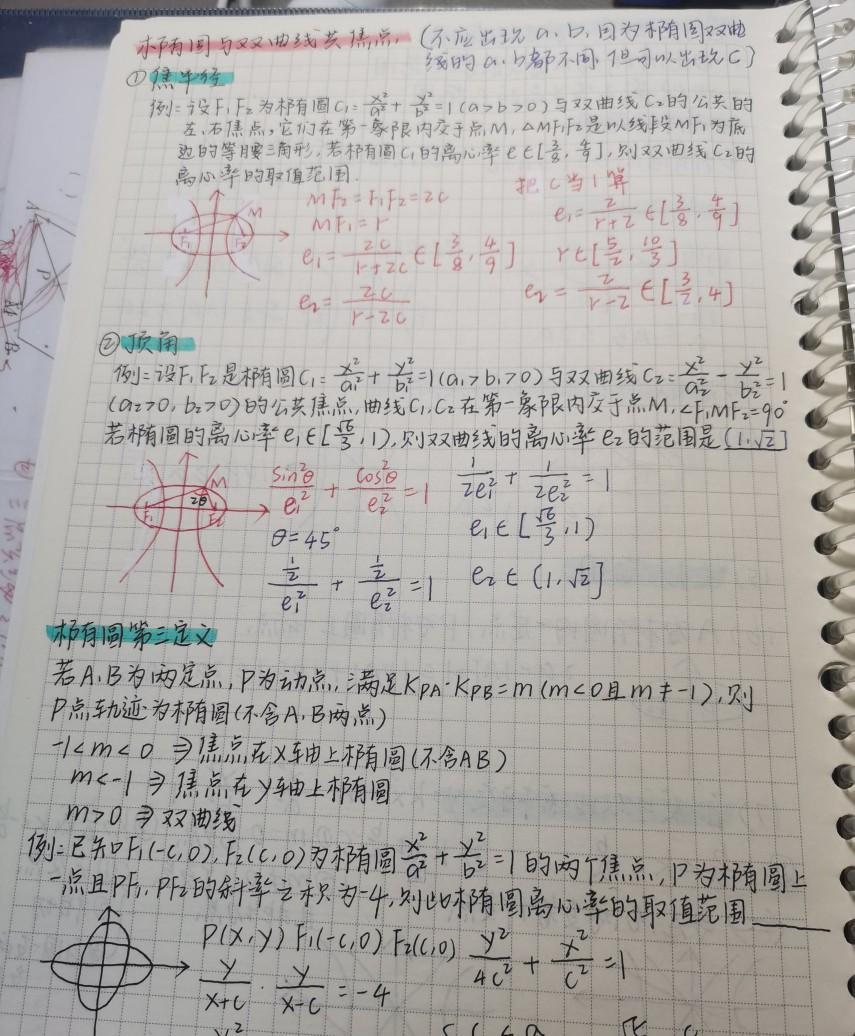 椭圆与双曲线共焦点. (不应出现a、b,因为椭圆双曲
线的a、b都不同,但可以出现c)
①焦半径
例:设F₁F₂为椭圆C₁:x²/a²+y²/b²=1(a>b>0)与双曲线C₂的公共的
左、右焦点,它们在第一象限内交于点M,△MF₁F₂是以线段MF₁为底
边的等腰三角形,若椭圆C₁的离心率e∈[3/8,4/9],则双曲线C₂的
离心率的取值范围.
MF₂=F₁F₂=2c
把c当1算
MF₁=r
e₁=2/(r+2)∈[3/8,4/9]
e₁=2c/(r+2c)∈[3/8,4/9]
r∈[5/2,10/3]
e₂=2c/(r-2c)
e₂=2/(r-2)∈[3/2,4]
M
F₁ F₂
②顶角
例:设F₁F₂是椭圆C₁:x²/a₁²+y²/b₁²=1(a₁>b₁>0)与双曲线C₂:x²/a₂²-y²/b₂²=1
(a₂>0,b₂>0)的公共焦点,曲线C₁,C₂在第一象限内交于点M,∠F₁MF₂=90°
若椭圆的离心率e₁∈[√6/3,1),则双曲线的离心率e₂的范围是(1,√2]
sin²θ/e₁²+cos²θ/e₂²=1
1/2e₁²+1/2e₂²=1
θ=45°
e₁∈[√6/3,1)
½/e₁²+½/e₂²=1
e₂∈(1,√2]
M
2θ
F₁ F₂
椭圆第三定义
若A,B为两定点,P为动点,满足K_PA·K_PB=m(m<0且m≠-1),则
P点轨迹为椭圆(不含A,B两点)
-1<m<0⇒焦点在X轴上椭圆(不含AB)
m<-1⇒焦点在y轴上椭圆
m>0⇒双曲线
例:已知F₁(-c,0),F₂(c,0)为椭圆x²/a²+y²/b²=1的两个焦点,P为椭圆上
一点且PF₁,PF₂的斜率之积为-4,则此椭圆离心率的取值范围____
P(x,y) F₁(-c,0) F₂(c,0) y²/4c²+x²/c²=1
y/(x+c)·y/(x-c)=-4